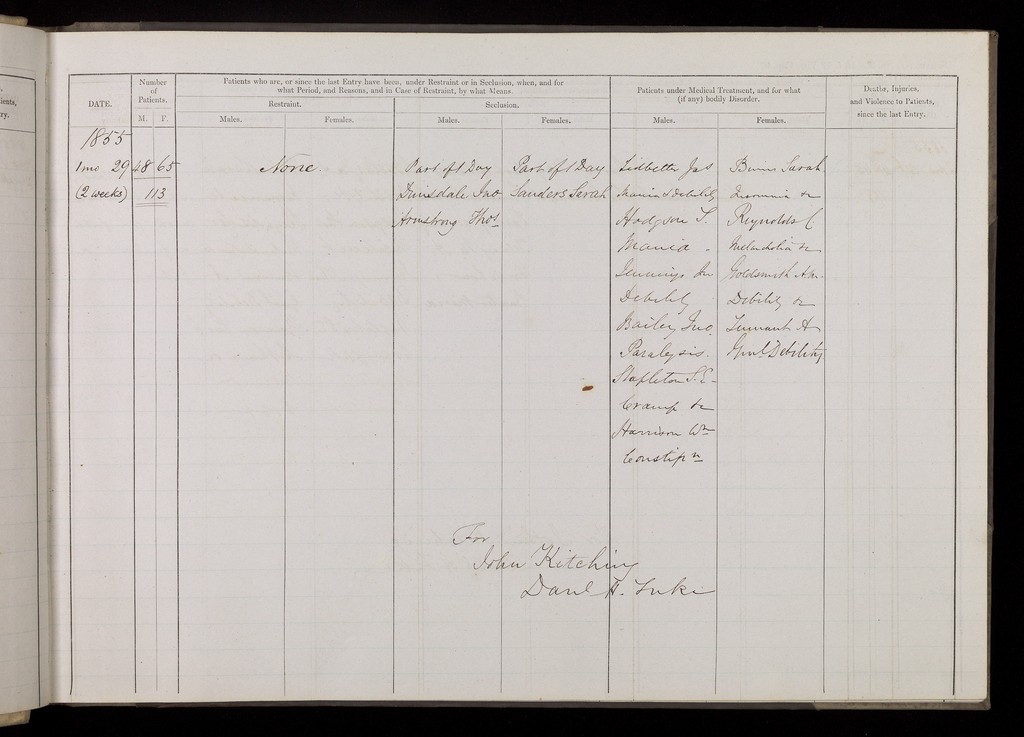 ients,
ry.
Number
of
Patients.
Patients who are, or since the last Entry have been, under Restraint or in Seclusion, when, and for
what Period, and Reasons, and in Case of Restraint, by what Means.
Patients under Medical Treatment, and for what
(if any) bodily Disorder.
Deaths, Injuries,
and Violence to Patients,
since the last Entry.
DATE.
Restraint.
Seclusion.
M. F.
Males. Females. Males. Females. Males. Females.
1855
1 mo 29 48 65 None. Part of 1 Day Part of 1 Day Jas Sarah
(2 weeks) 113 Jno Sanders Sarah Mania & Debility
Armstrong Thos Hodgson T. Reynolds C
Mania - Melancholia &c
Jennings Goldsmith An.
Debility Debility &c
Bailey Jno. Tennant A
Paralysis. Genl. Debility
Stapleton S. E-
Cramp &c
Harrison Wm
Constipn
For
John Kitching
Danl H. Tuke